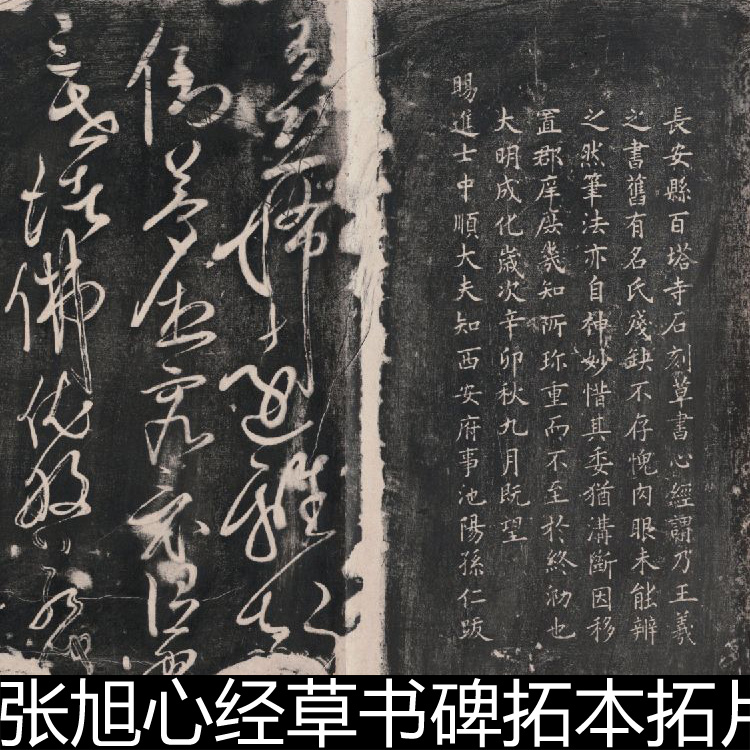 長安縣百塔寺石刻草書心經謂乃王羲
之書舊有名氏殘缺不存愧肉眼未能辨
之然筆法亦自神妙惜其委猶溝斷因移
置郡庠庶幾知所珎重而不至於終泐也
大明成化歲次辛卯秋九月既望
賜進士中順大夫知西安府事池陽孫仁跋
有恐怖遠離顛
倒夢想究竟涅
三世諸佛依般若
张旭心经草书碑拓本拓片